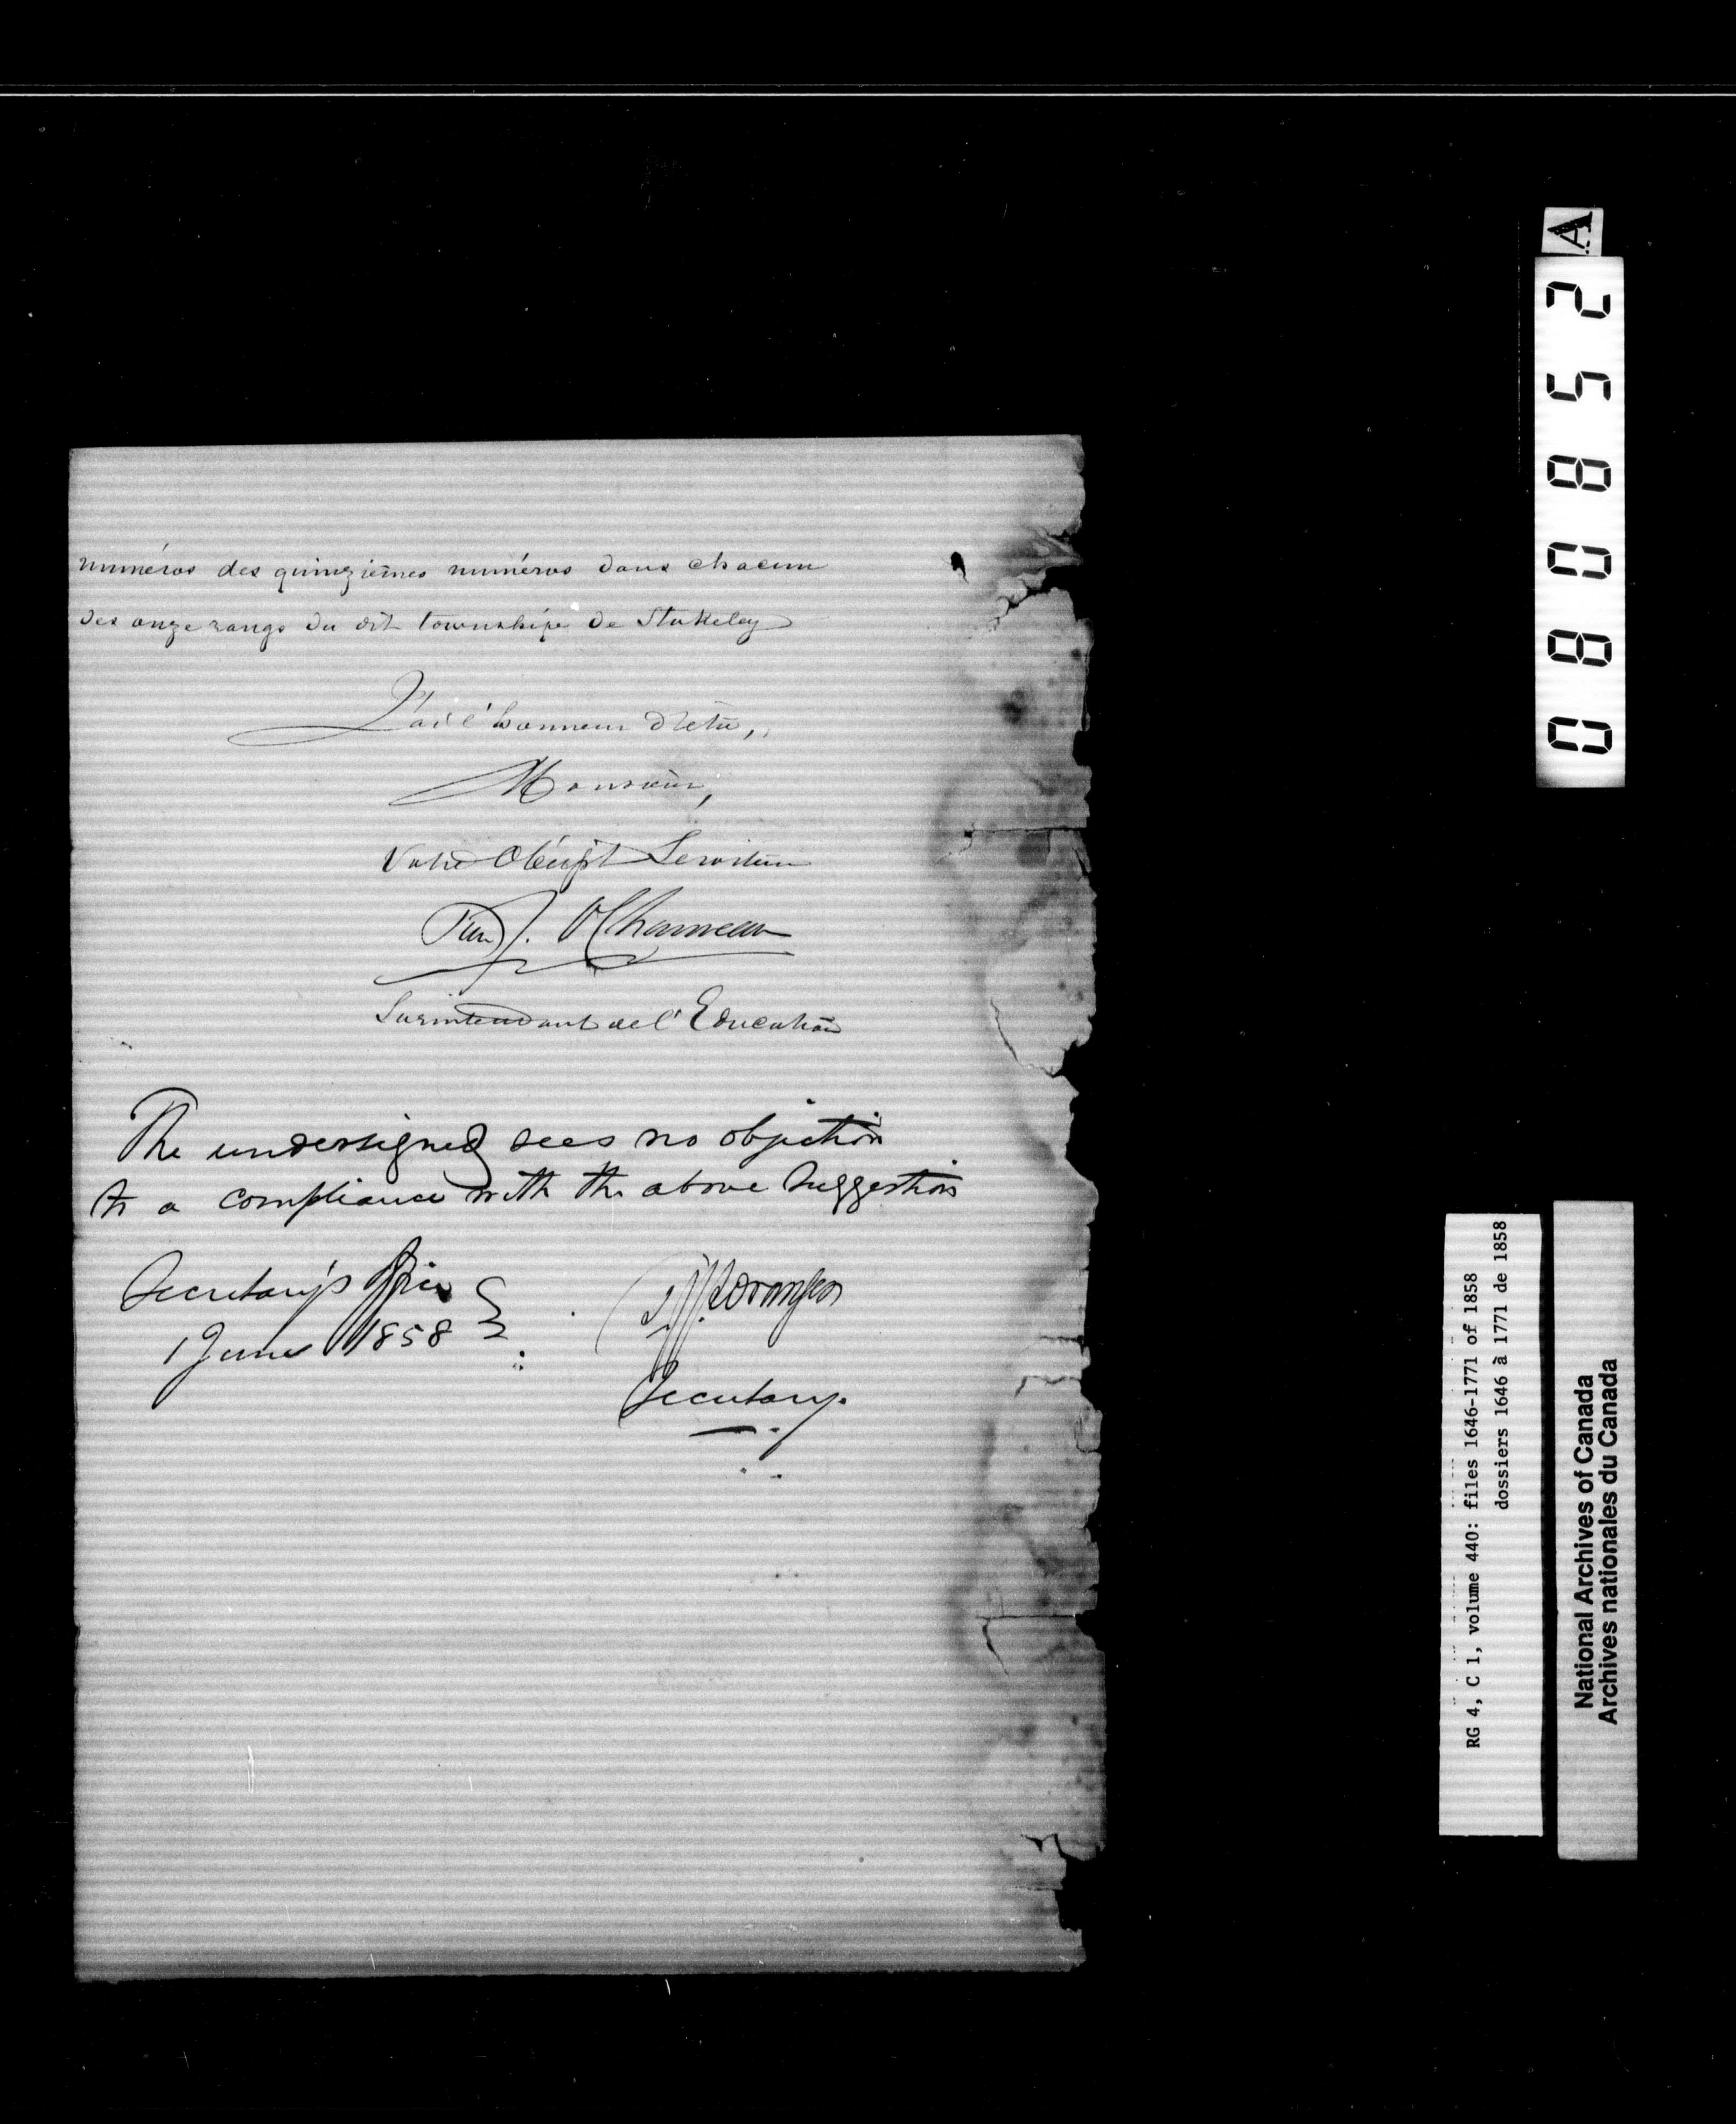 numéros des quinzièmes numéros dans chacun
des onze rangs du dit township de Stukeley
J'ai l'honneur d'être,
Monsieur,
Votre Obéisst Serviteur
Pierre J. O Chauveau
Surintendant de l'Education
The undersigned sees no objection
to a compliance with the above suggestion
Secretary's Office
1 June 1858
TJJLoranger
Secretary.
A
080852
RG 4, C 1, volume 440: files 1646-1771 of 1858
dossiers 1646 à 1771 de 1858
National Archives of Canada
Archives nationales du Canada